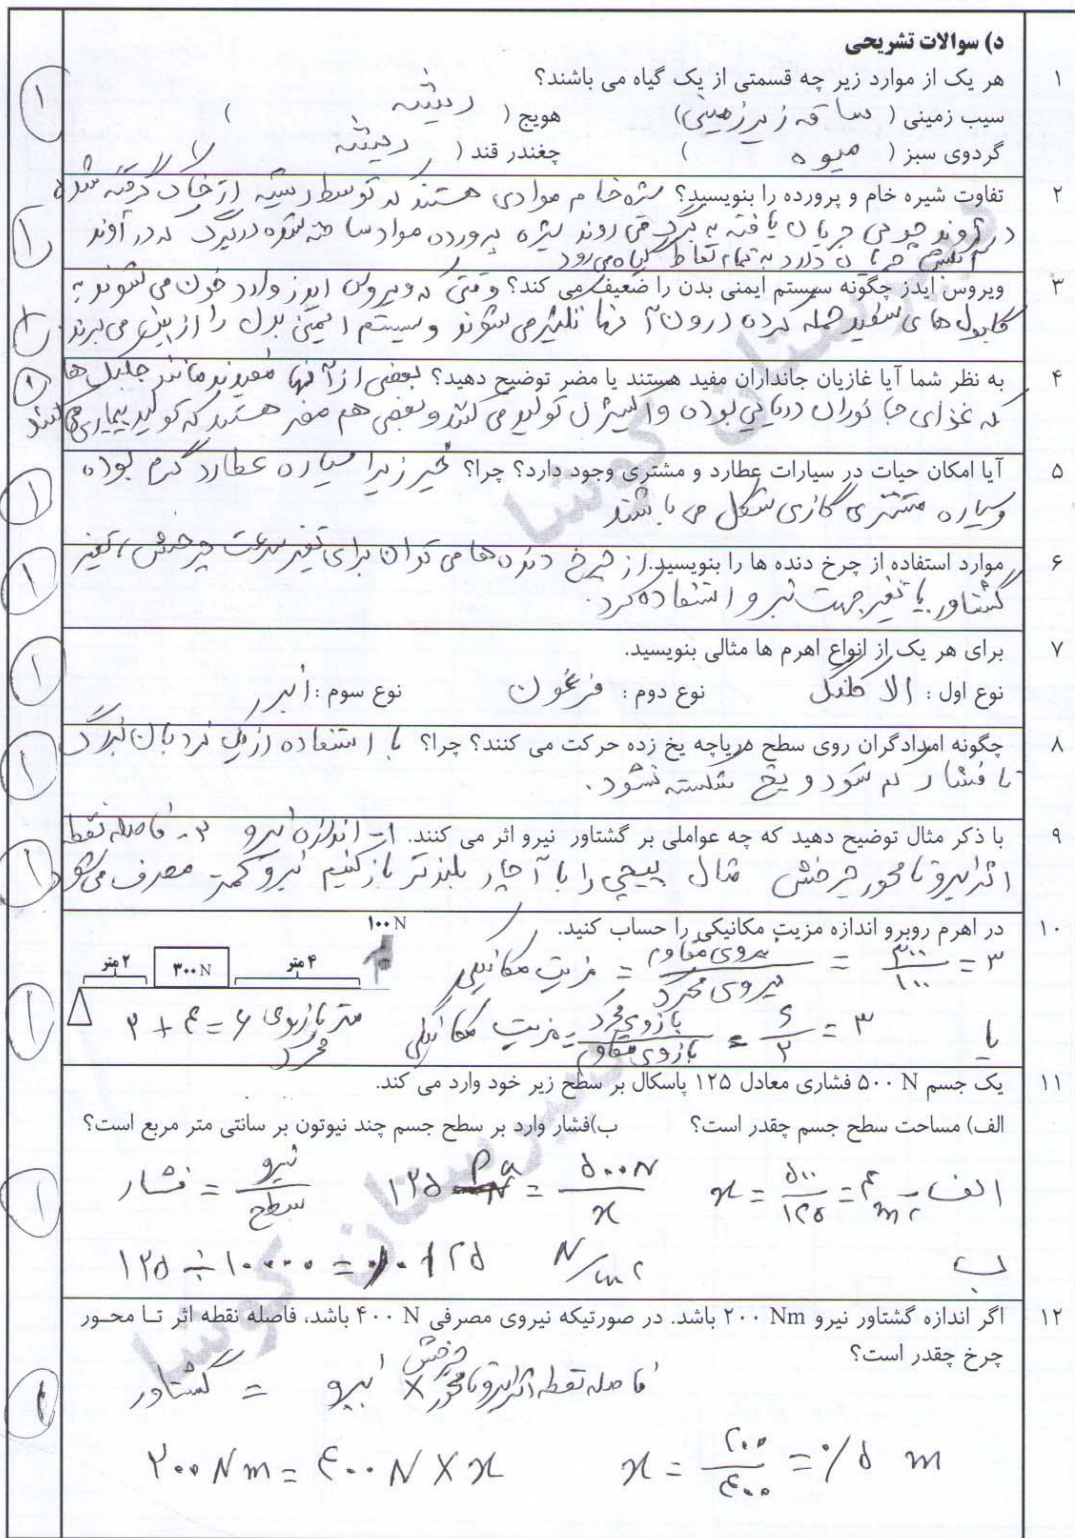 د) سوالات تشریحی
۱ هر یک از موارد زیر چه قسمتی از یک گیاه می باشند؟
سیب زمینی ( ساقه زیرزمینی) هویج ( ریشه )
گردوی سبز ( میوه ) چغندر قند ( ریشه )
۲ تفاوت شیره خام و پرورده را بنویسید؟ شیره خام موادی هستند که توسط ریشه از خاک گرفته شده
در آوند چوبی جریان یافته به برگ می روند شیره پرورده مواد ساخته شده در برگ که در آوند
آبکشی جریان دارد به تمام نقاط گیاه می رود
۳ ویروس ایدز چگونه سیستم ایمنی بدن را ضعیف می کند؟ وقتی که ویروس ایدز وارد خون می شوند به
گلبول های سفید حمله کرده درون آنها تکثیر می شوند و سیستم ایمنی بدن را از بین می برند.
۴ به نظر شما آیا غازیان جانداران مفید هستند یا مضر توضیح دهید؟ بعضی از آنها مفیدند مانند جلبک ها
که غذای جانوران دریایی بوده و اکسیژن تولید می کنند و بعضی هم مضر هستند که تولید بیماری می کنند
۵ آیا امکان حیات در سیارات عطارد و مشتری وجود دارد؟ چرا؟ خیر زیرا سیاره عطارد گرم بوده
و سیاره مشتری گازی شکل می باشند
۶ موارد استفاده از چرخ دنده ها را بنویسید. از چرخ دنده ها می توان برای تغییر سرعت چرخش، تغییر
گشتاور یا تغییر جهت نیرو استفاده کرد.
۷ برای هر یک از انواع اهرم ها مثالی بنویسید.
نوع اول : الاکلنگ نوع دوم : فرغون نوع سوم : انبر
۸ چگونه امدادگران روی سطح دریاچه یخ زده حرکت می کنند؟ چرا؟ با استفاده از یک نردبان بزرگ
تا فشار کم شود و یخ شکسته نشود.
۹ با ذکر مثال توضیح دهید که چه عواملی بر گشتاور نیرو اثر می کنند. ۱- اندازه نیرو ۲- فاصله نقطه
اثر نیرو تا محور چرخش مثال پیچی را با آچار بلندتر باز کنیم نیرو کمتر مصرف می شود
۱۰ در اهرم روبرو اندازه مزیت مکانیکی را حساب کنید.
۱۰۰ N
۲ متر ۳۰۰ N ۴ متر
مزیت مکانیکی = نیروی مقاوم / نیروی محرک = ۳۰۰ / ۱۰۰ = ۳
۲ + ۴ = ۶ متر بازوی محرک
یا مزیت مکانیکی = بازوی محرک / بازوی مقاوم = ۶ / ۲ = ۳
۱۱ یک جسم ۵۰۰ N فشاری معادل ۱۲۵ پاسکال بر سطح زیر خود وارد می کند.
الف) مساحت سطح جسم چقدر است؟ ب)فشار وارد بر سطح جسم چند نیوتون بر سانتی متر مربع است؟
الف- فشار = نیرو / سطح ۱۲۵ Pa = ۵۰۰N / x x = ۵۰۰ / ۱۲۵ = ۴ m²
ب ۱۲۵ ÷ ۱۰۰۰۰ = ۰/۰۱۲۵ N/cm²
۱۲ اگر اندازه گشتاور نیرو ۲۰۰ Nm باشد. در صورتیکه نیروی مصرفی ۴۰۰ N باشد، فاصله نقطه اثر تا محور
چرخ چقدر است؟
فاصله نقطه اثر نیرو تا محور چرخش × نیرو = گشتاور
۲۰۰ Nm = ۴۰۰ N X x x = ۲۰۰ / ۴۰۰ = ۰/۵ m
دبیرستان کوشا
دبیرستان کوشا